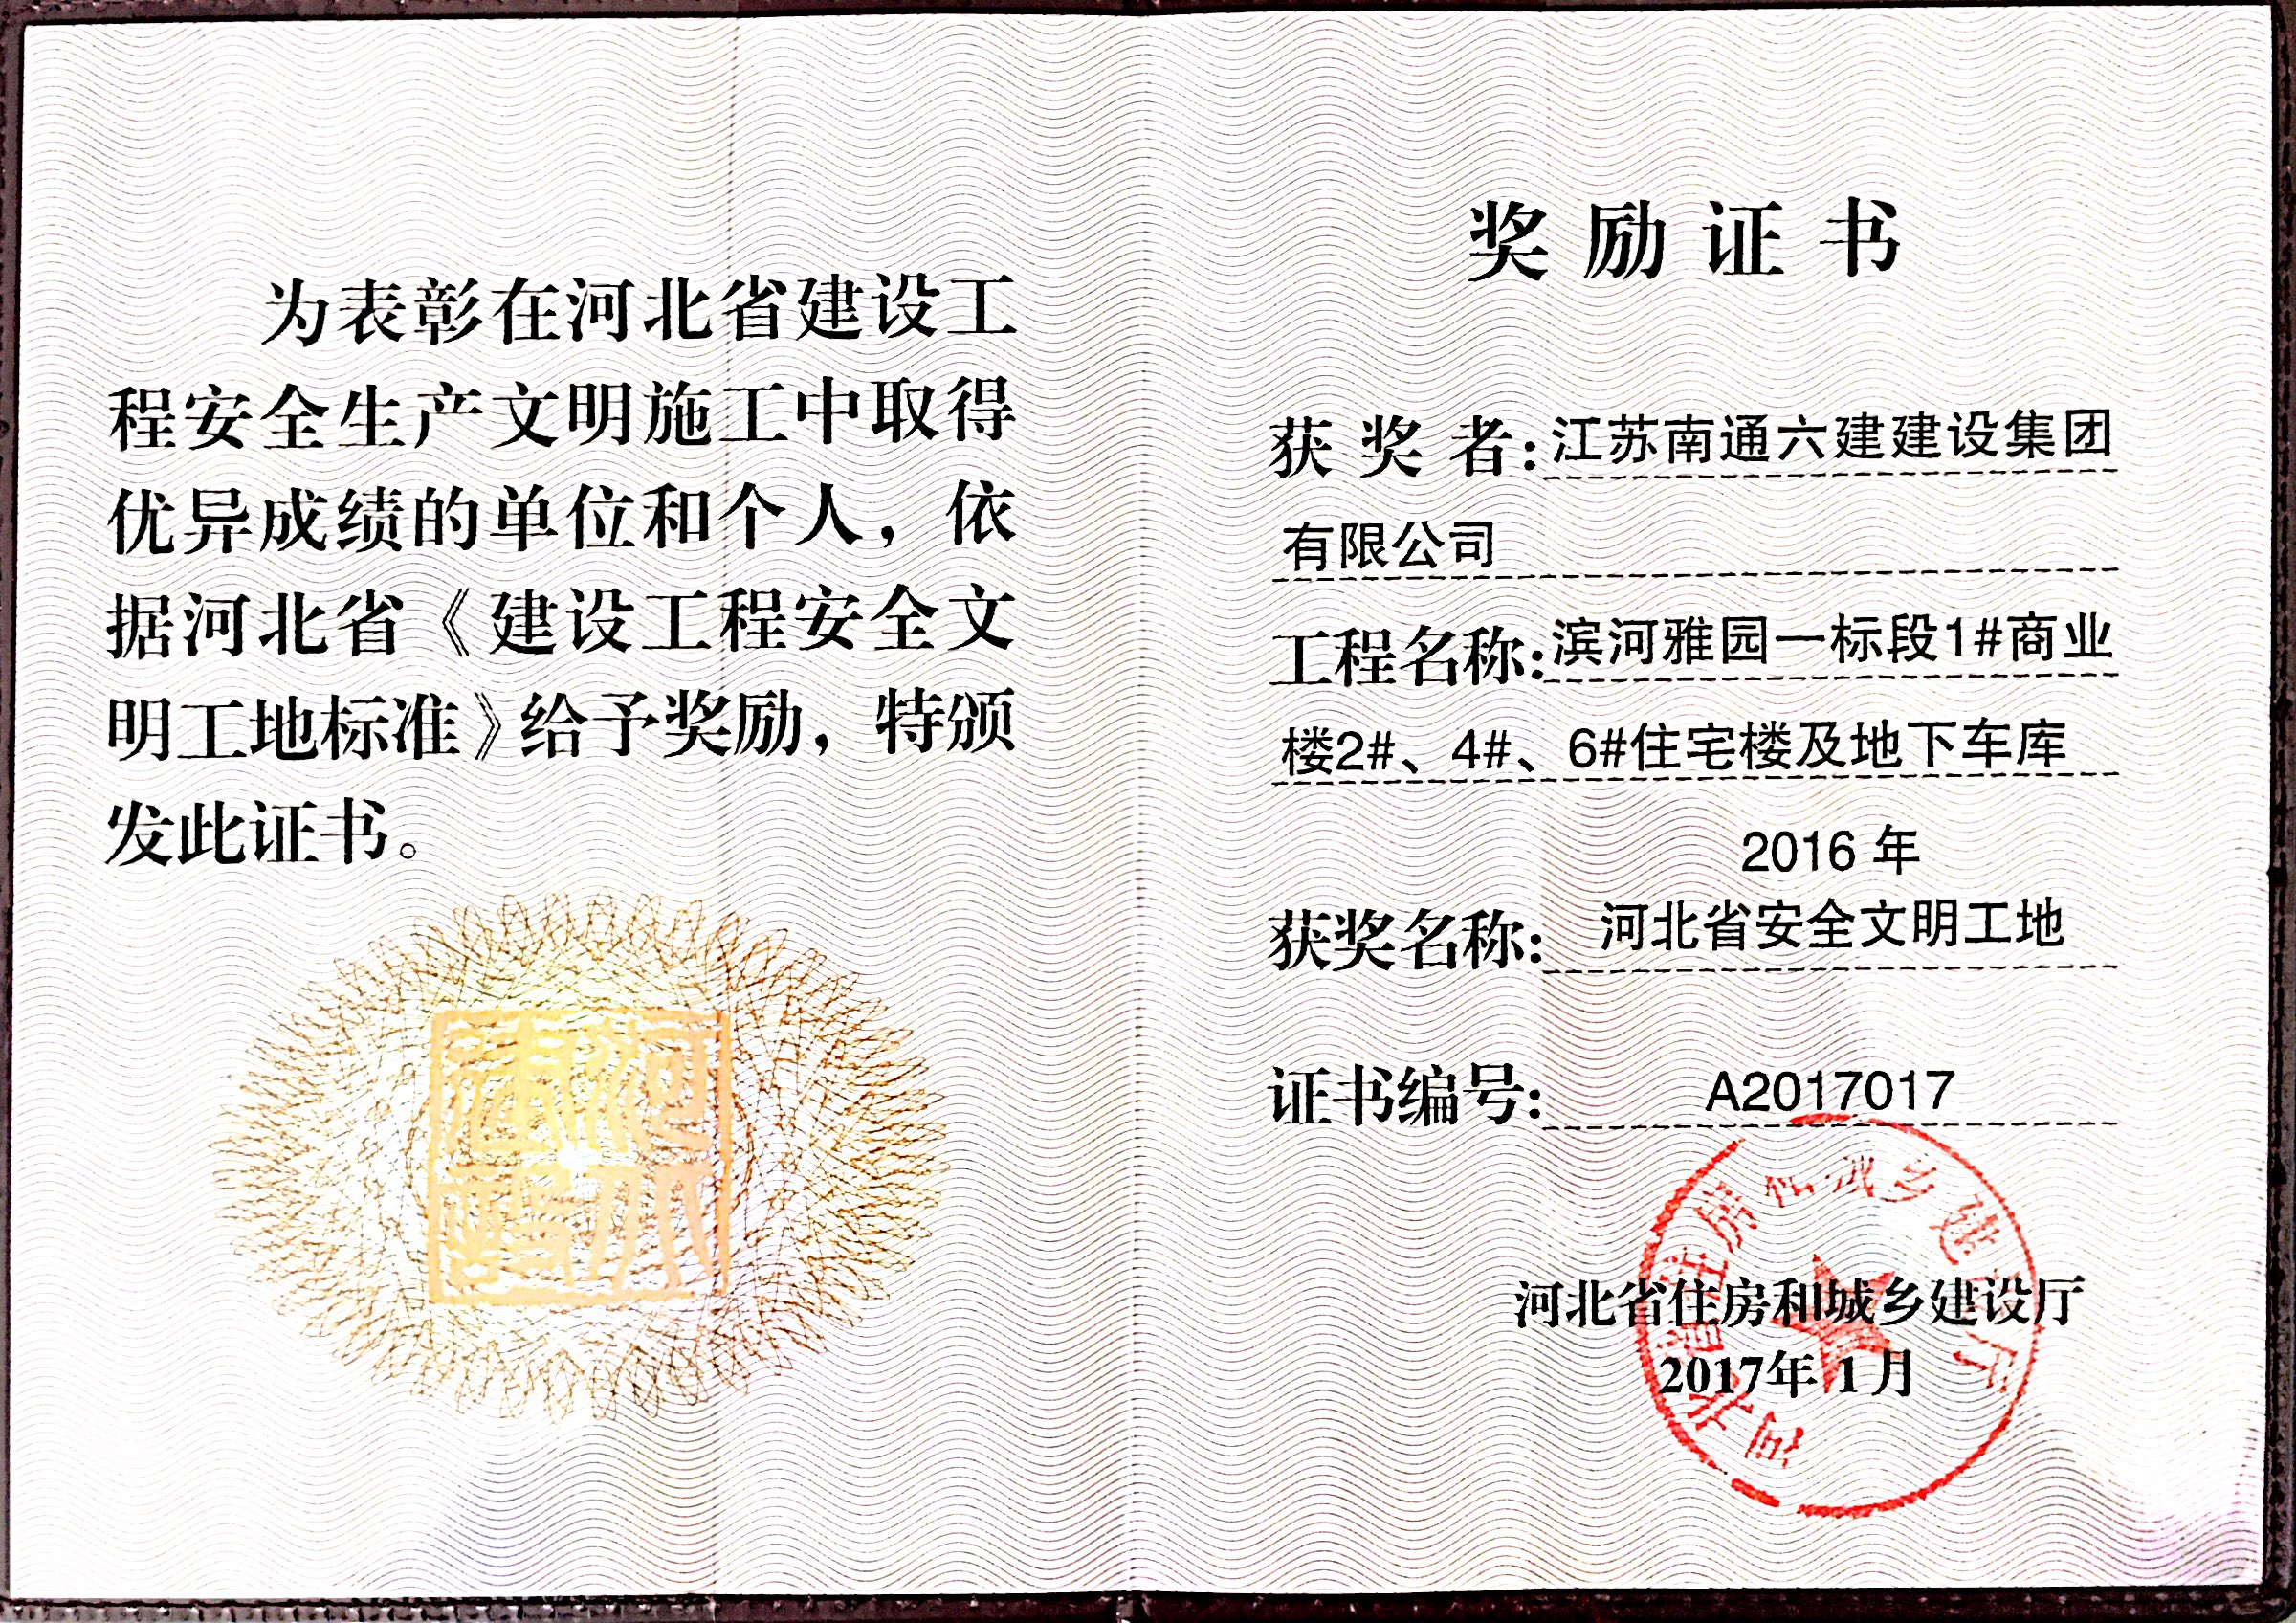 为表彰在河北省建设工
程安全生产文明施工中取得
优异成绩的单位和个人，依
据河北省《建设工程安全文
明工地标准》给予奖励，特颁
发此证书。
奖励证书
获奖者:江苏南通六建建设集团
有限公司
工程名称:滨河雅园一标段1#商业
楼2#、4#、6#住宅楼及地下车库
2016年
获奖名称: 河北省安全文明工地
证书编号: A2017017
河北省住房和城乡建设厅
2017年1月
河北省住房和城乡建设厅